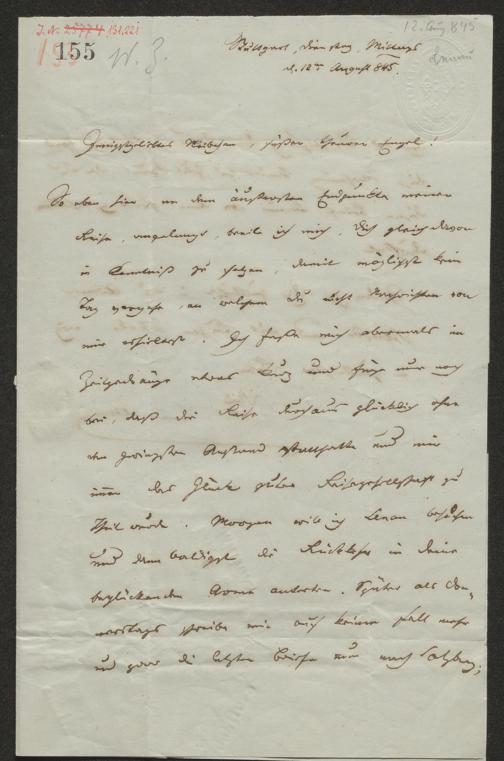 J. N. 25774 131.221
155
W. Z.
12. Aug 845
Stuttgart, Dienstag, Mittags
d. 12ten August 845.
Innigstgeliebtes Weibchen, süßer theurer Engel!
So eben hier an dem äußersten Endpunkte meiner
Reise, angelangt, beeile ich mich, dich gleich davon
in Kenntniß zu setzen, damit möglichst kein
Tag vergehe, an welchem du nicht Nachrichten von
mir erhieltest. Ich fasse mich abermals im
Zeitgedränge etwas kurz und füge nur noch
bei, daß die Reise durchaus glücklich ohne
den geringsten Anstand statthatte und mir
immer das Glück guter Reisegesellschaft zu
Theil wurde. Morgen will ich Lenau besuchen
und dann baldigst die Rückkehr in deine
beglückenden Arme antreten. Später als Don-
nerstags schreibe mir auf keinen Fall mehr
und zwar die letzten Briefe nur nach Salzburg;